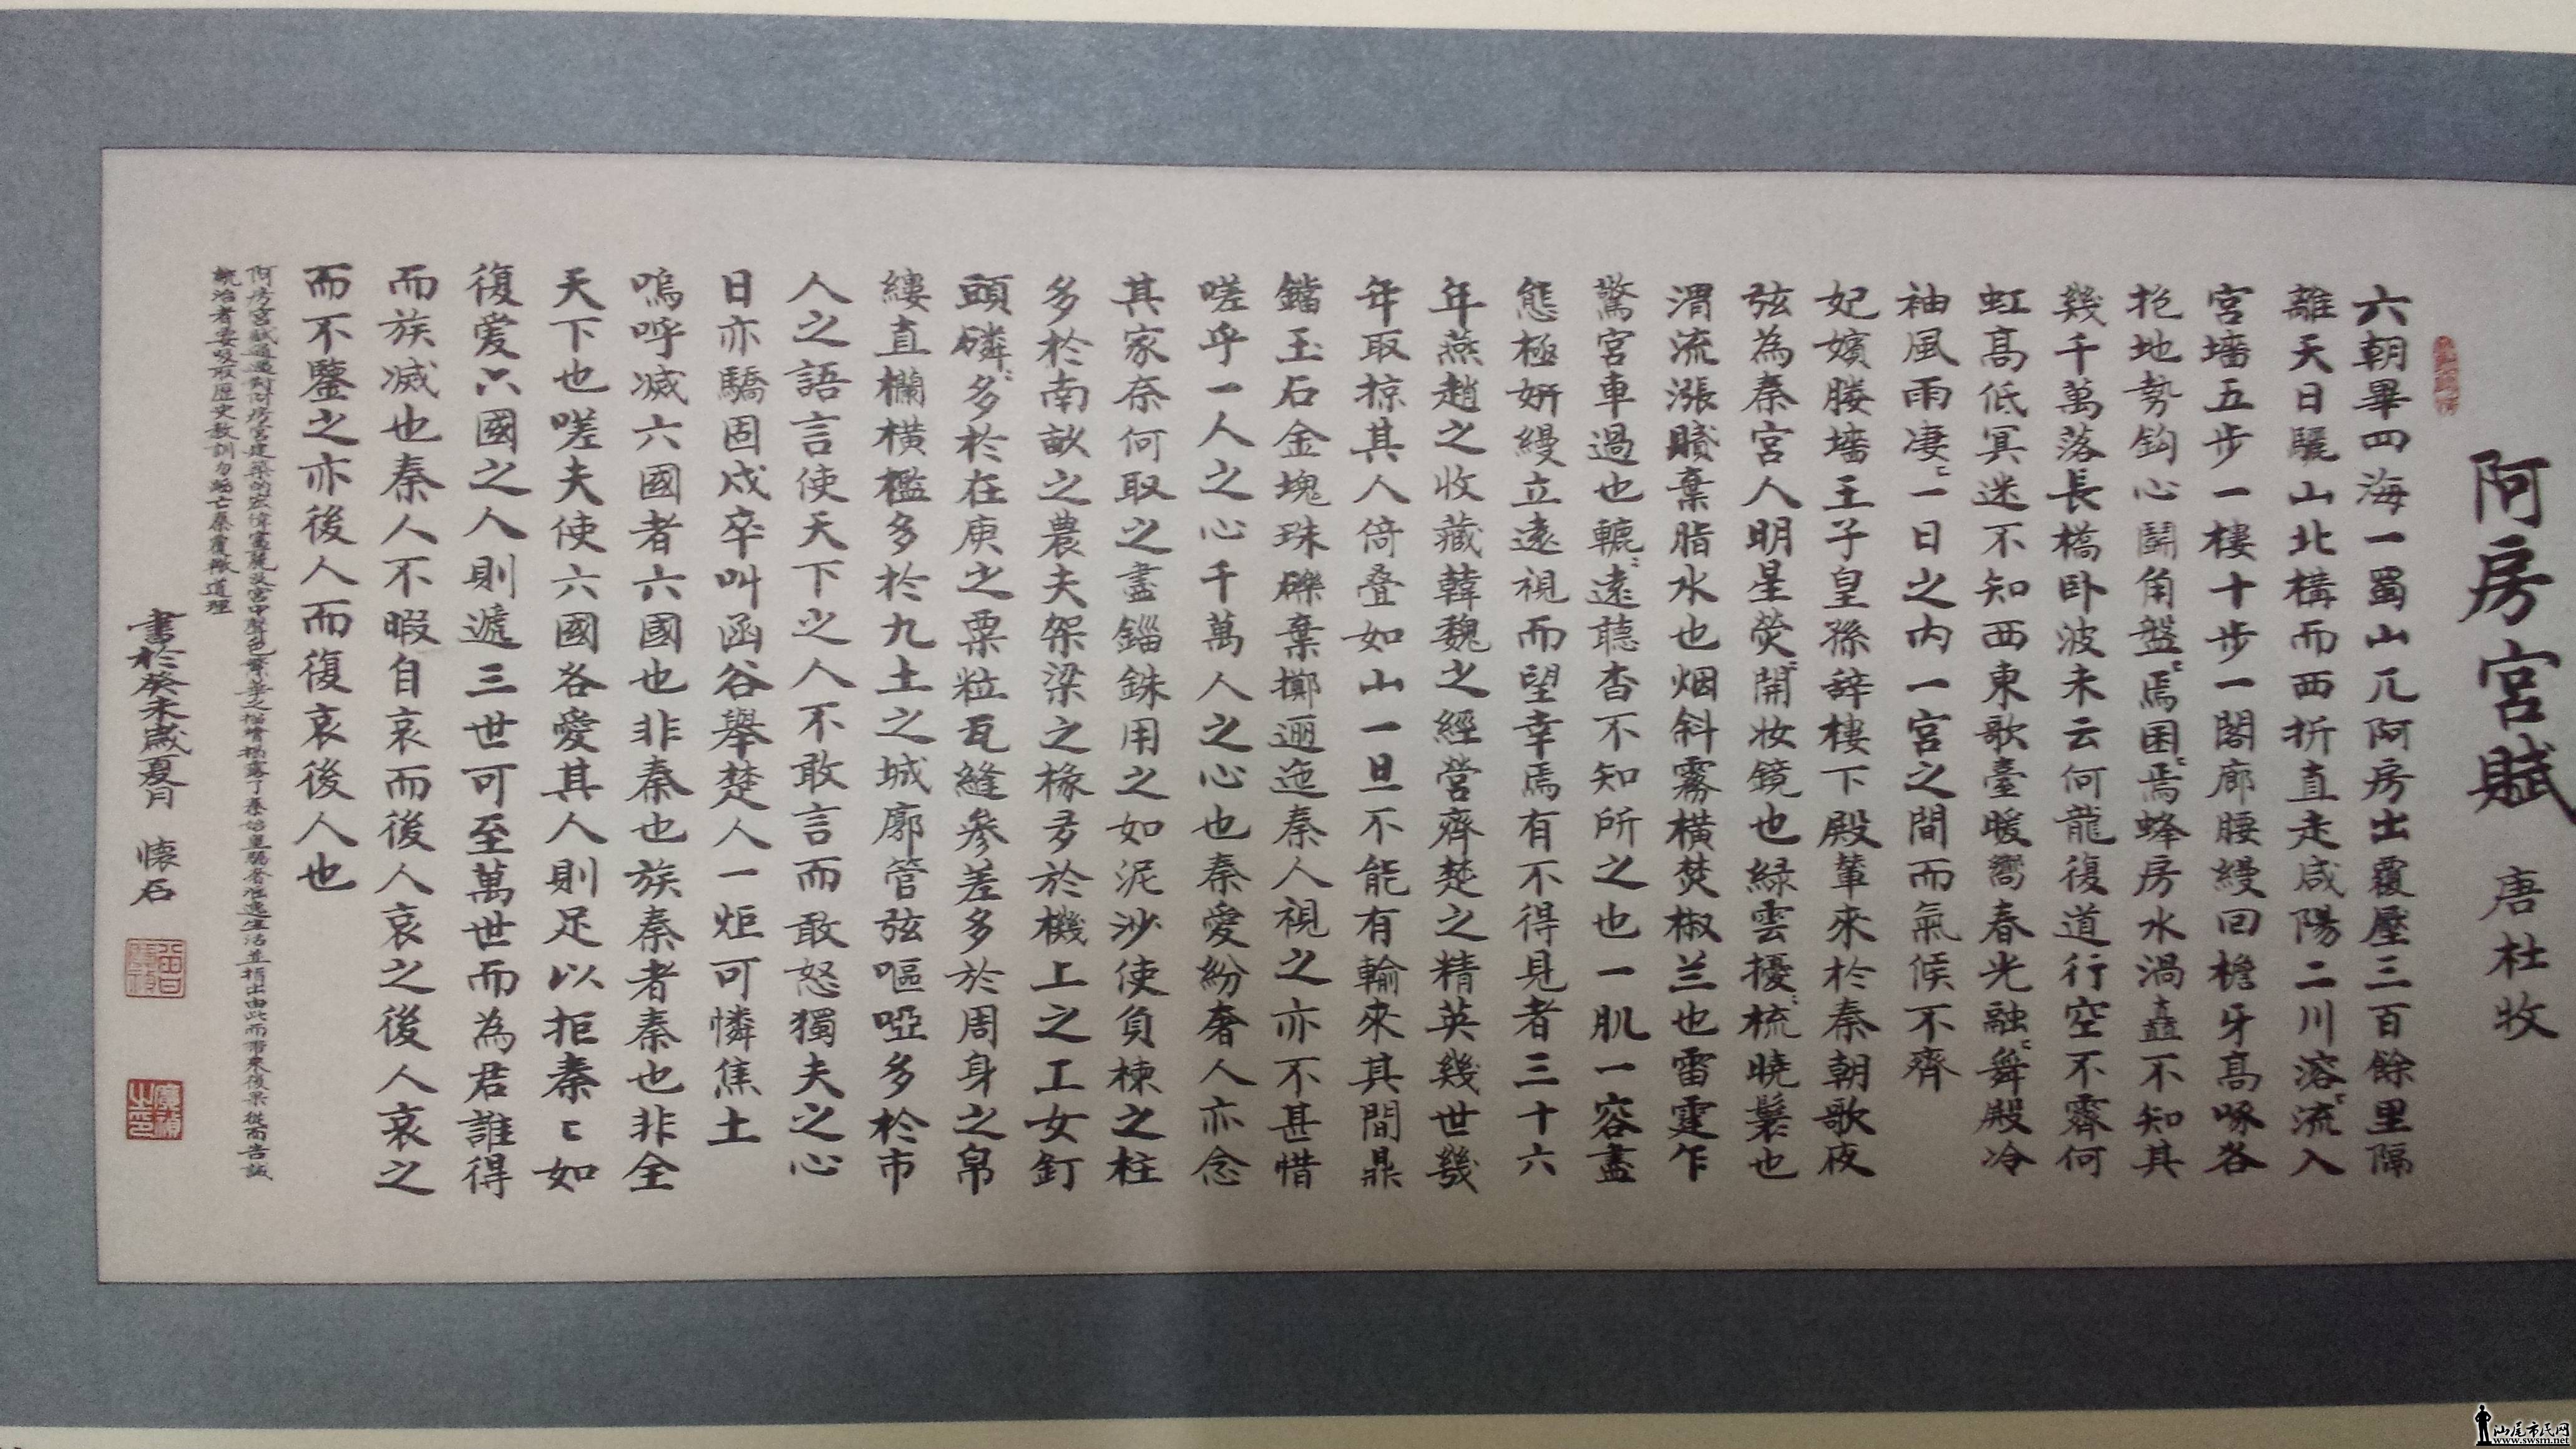 阿房宮賦 唐 杜牧
六朝畢四海一蜀山兀阿房出覆壓三百餘里隔
離天日驪山北構而西折直走咸陽二川溶〻流入
宮墻五步一樓十步一閣廊腰縵回檐牙高啄各
抱地勢鈎心鬭角盤〻焉囷〻焉蜂房水渦矗不知其
幾千萬落長橋卧波未云何龍復道行空不霽何
虹高低冥迷不知西東歌臺暖嚮春光融〻舞殿冷
袖風雨凄〻一日之内一宮之間而氣候不齊
妃嬪媵墻王子皇孫辞樓下殿輦來於秦朝歌夜
弦為秦宮人明星熒〻開妝鏡也緑雲擾〻梳曉鬟也
渭流漲膩棄脂水也烟斜霧橫焚椒兰也雷霆乍
驚宮車過也轆〻遠聽杳不知所之也一肌一容盡
態極妍縵立遠視而望幸焉有不得見者三十六
年燕趙之收藏韓魏之經營齊楚之精英幾世幾
年取掠其人倚叠如山一旦不能有輸來其間鼎
鐺玉石金塊珠礫棄擲逦迤秦人視之亦不甚惜
嗟乎一人之心千萬人之心也秦愛紛奢人亦念
其家奈何取之盡錙銖用之如泥沙使負棟之柱
多於南畝之農夫架梁之椽多於機上之工女釘
頭磷〻多於在庾之粟粒瓦縫參差多於周身之帛
縷直欄橫檻多於九土之城廓管弦嘔啞多於市
人之語言使天下之人不敢言而敢怒獨夫之心
日亦驕固戍卒叫函谷舉楚人一炬可憐焦土
嗚呼滅六國者六國也非秦也族秦者秦也非全
天下也嗟夫使六國各愛其人則足以拒秦〻如
復爱六國之人則遞三世可至萬世而為君誰得
而族滅也秦人不暇自哀而後人哀之後人哀之
而不鑒之亦後人而復哀後人也
阿房宮賦通過對阿房宮建築的宏偉富麗及宮中聲色繁華之描寫揭露了秦始皇驕奢淫逸生活並指出由此而帶來後果從而告誡
統治者要吸取歷史教訓勿蹈亡秦覆轍道理
書於癸未歲夏月 懷石
汕尾市民网
www.swsm.net